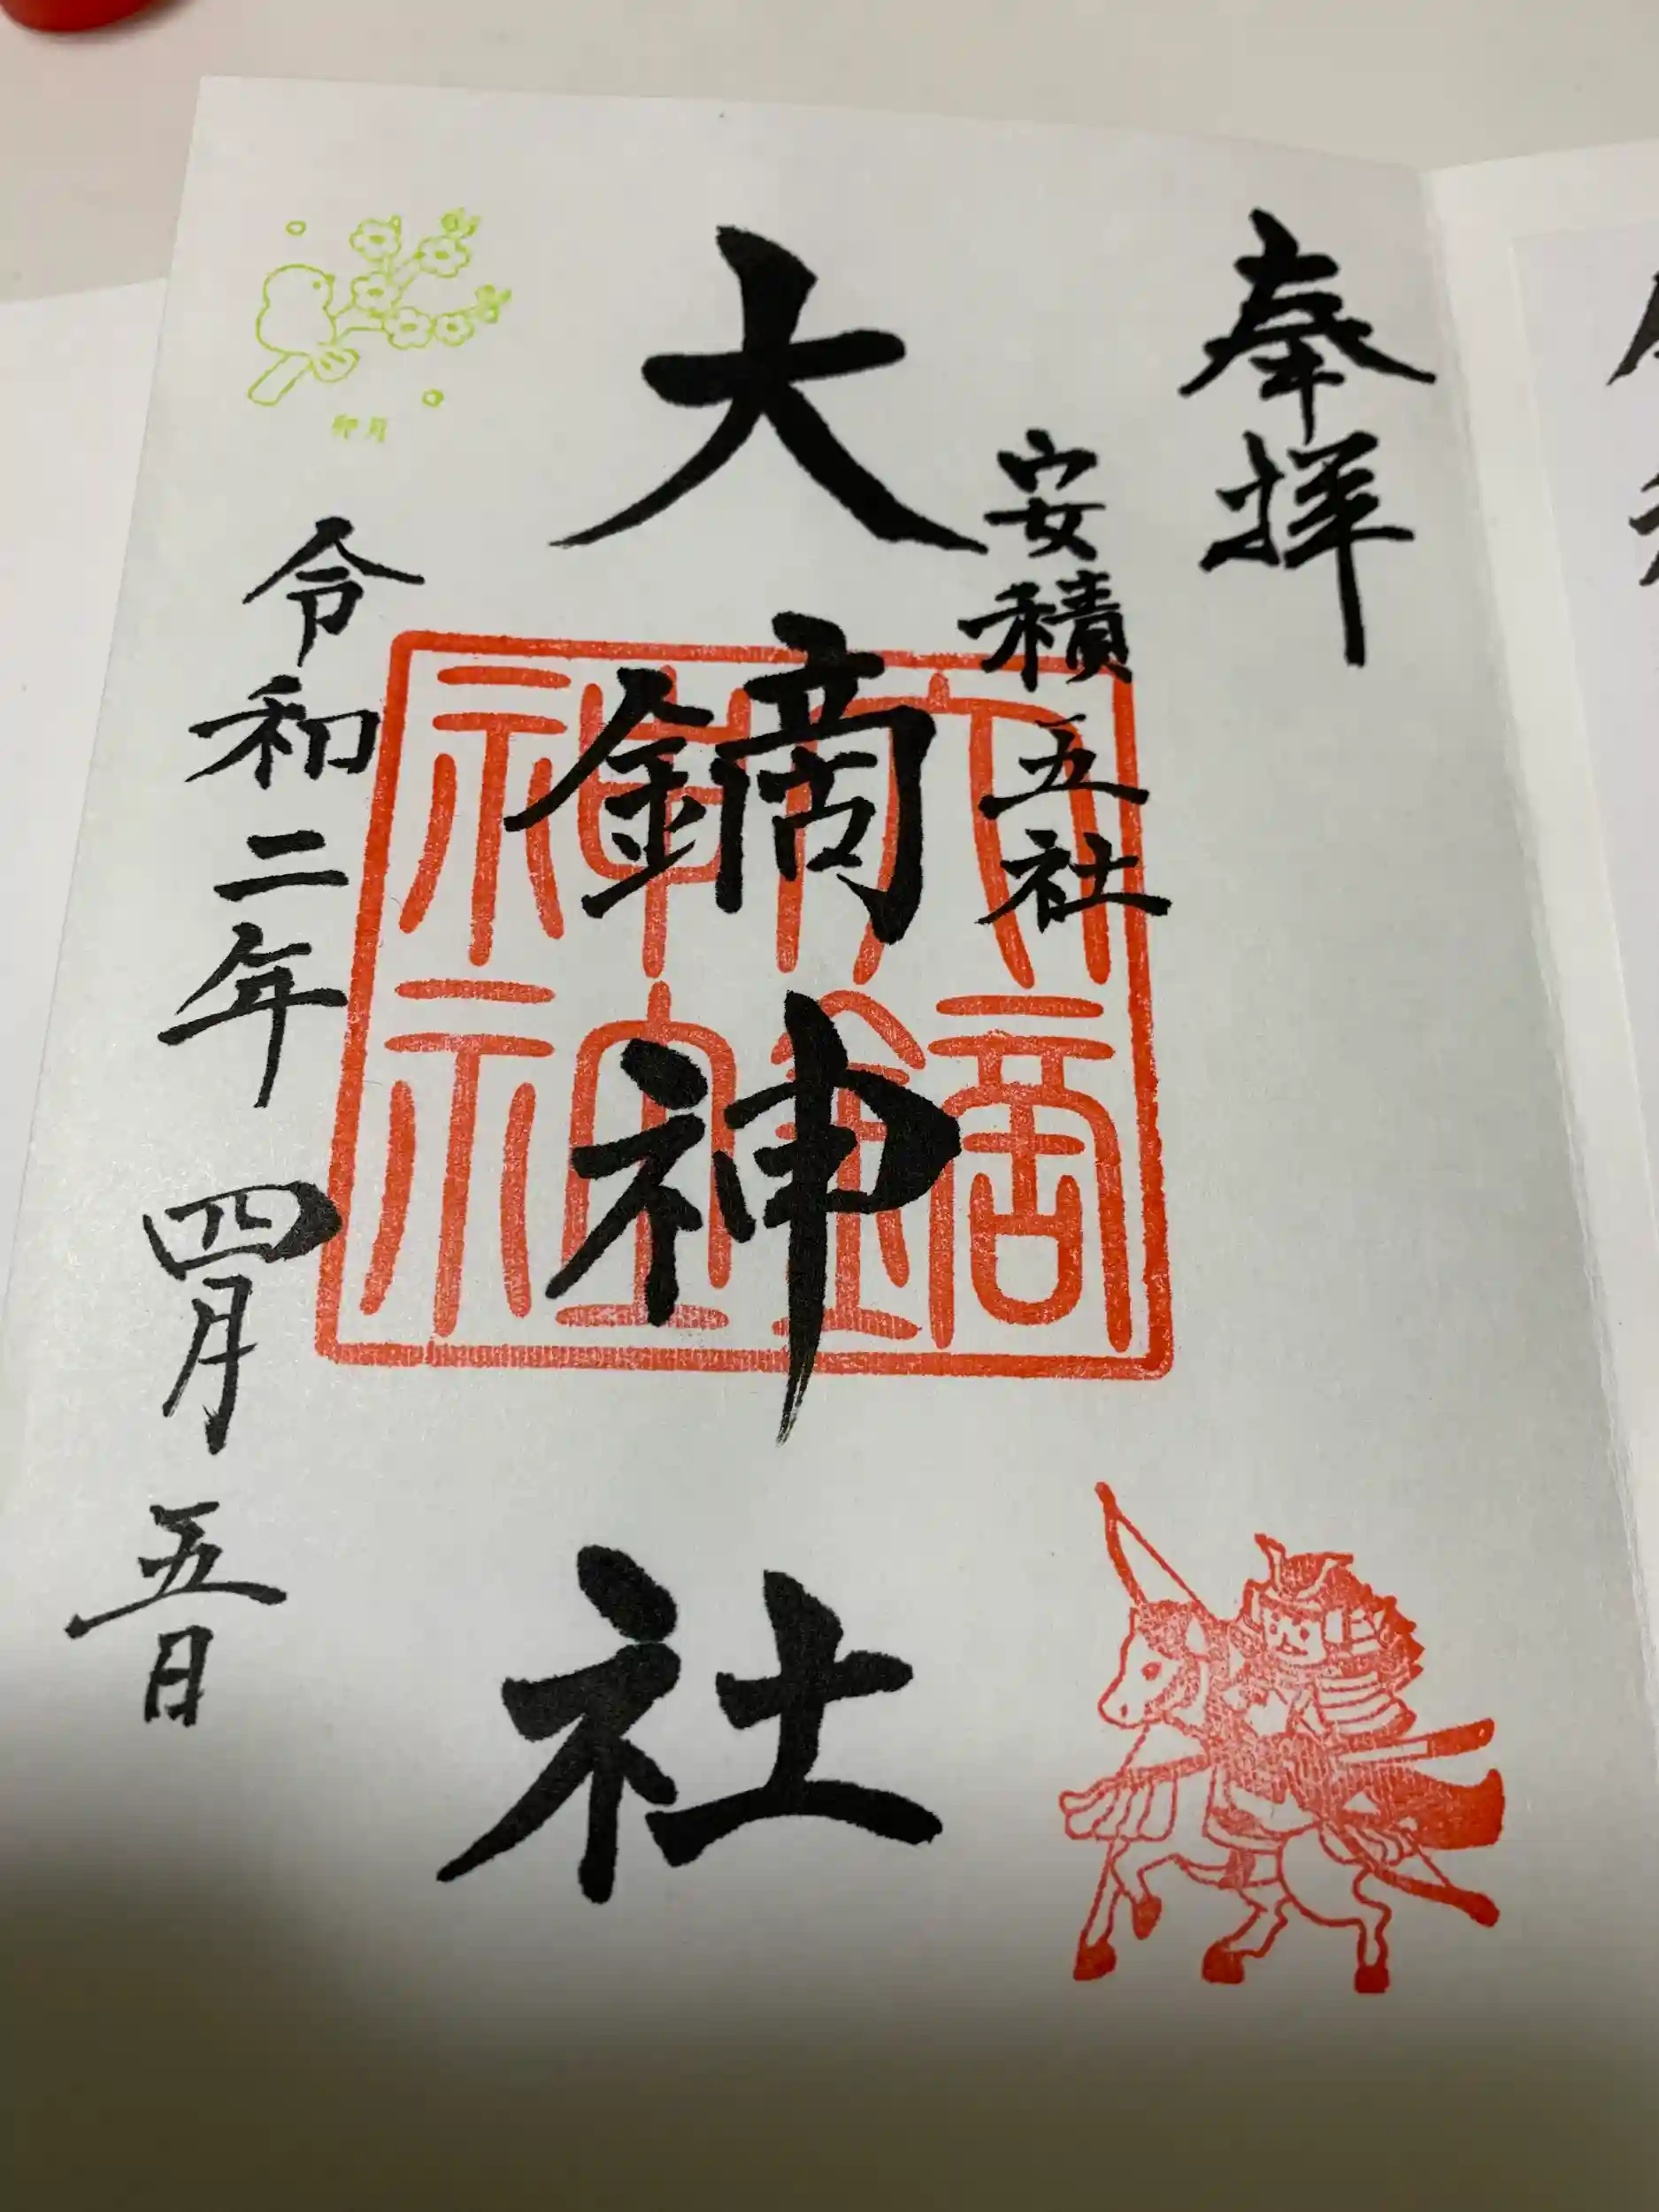 奉拝
安積五社
大鏑神社
大鏑神社
卯月
令和二年四月五日